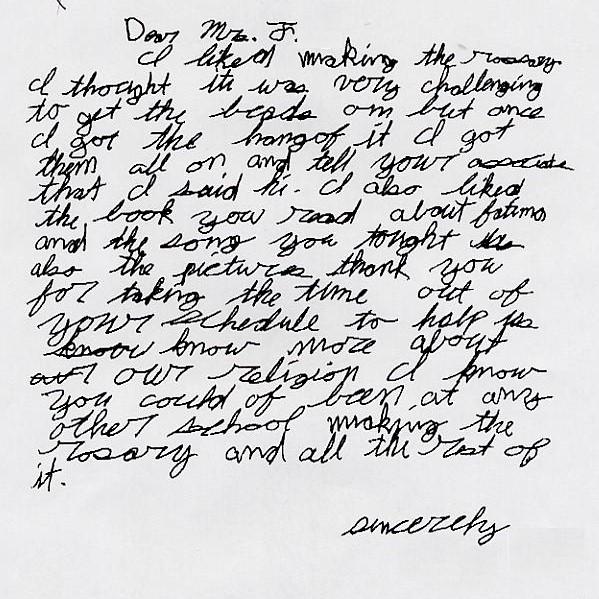 Dear Mrs. F.
I liked making the rosary
I thought it was very challenging
to get the beads on but once
I got the hang of it I got
them all on and tell your associate
that I said hi. I also liked
the book you read about fatima
and the song you tought us
also the pictures thank you
for taking the time out of
your schedule to help us
know know more about
our religion I know
you could of been at any
other school making the
rosary and all the rest of
it.
sincerely